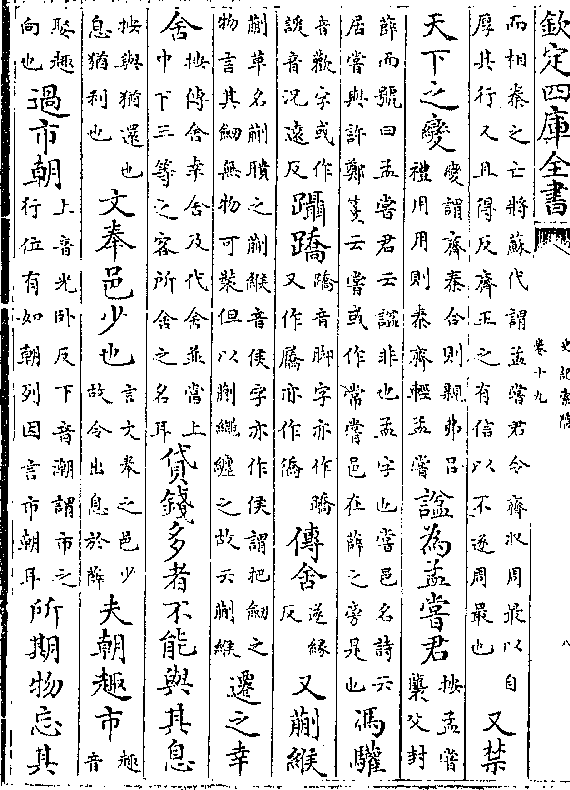 欽定四庫全書
史記索隱
卷十九
八
而相秦之亡將蘇代謂孟嘗君令齊收周最以自
厚其行又且得反齊王之有信以不逐周最也
又禁
天下之變
變謂齊秦合則親弗呂
禮用用則秦齊輕孟嘗
諡為孟嘗君
按孟嘗
襲父封
薛而號曰孟嘗君云諡非也孟字也嘗邑名詩云
居嘗與許鄭箋云嘗或作常嘗邑在薛之旁是也
馮驩
音歡字或作
諼音況遠反
躡蹻
蹻音脚字亦作蹻
又作屩亦作僑
傳舍
逐緣
反
又蒯緱
蒯草名蒯聵之蒯緱音侯字亦作侯謂把劒之
物言其劒無物可裝但以蒯繩纏之故云蒯緱
遷之幸
舍
按傳舍幸舍及代舍並當上
中下三等之客所舍之名耳
貸錢多者不能與其息
按與猶還也
息猶利也
文奉邑少也
言文奉之邑少
故令出息於薛
夫朝趣市
趣
音
娶趣
向也
過市朝
上音光卧反下音潮謂市之
行位有如朝列因言市朝耳
所期物忘其